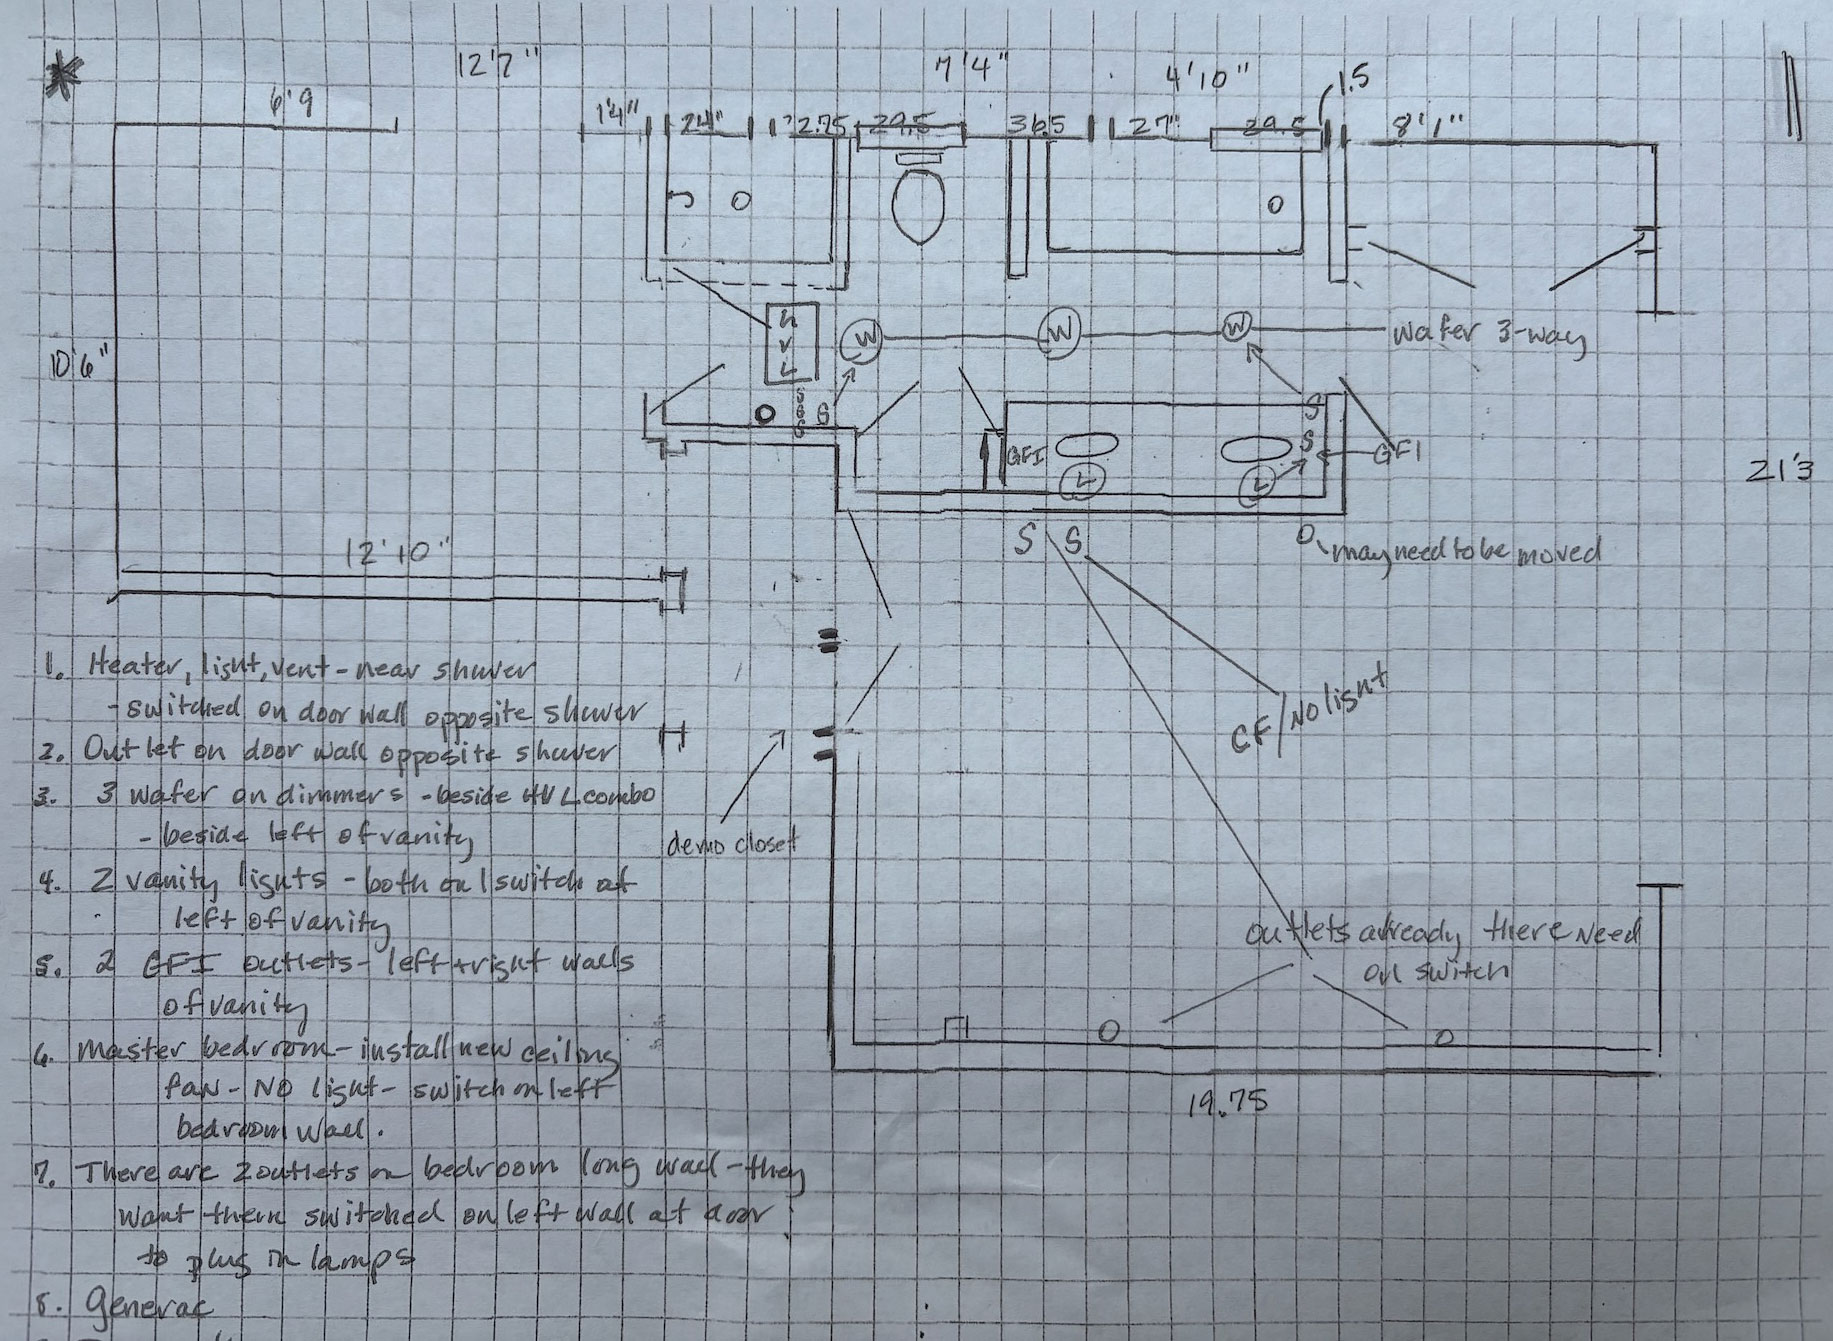 12'7"
7'4"
4'10"
1.5
6'9
1'4"
24"
2.75
29.5
36.5
27"
29.5
8'1"
H
V
L
W
W
W
wafer 3-way
10'6"
S
S
S
S
S
S
GFI
GFI
L
L
21'3
12'10"
S S
O may need to be moved
CF/NO light
demo closet
outlets already there need
on switch
19.75
1. Heater, light, vent - near shower
- switched on door wall opposite shower
2. Outlet on door wall opposite shower
3. 3 wafer on dimmers - beside HVL combo
- beside left of vanity
4. 2 vanity lights - both on 1 switch at
left of vanity
5. 2 GFI outlets - left + right walls
of vanity
6. Master bedroom - install new ceiling
fan - NO light - switch on left
bedroom wall.
7. There are 2 outlets on bedroom long wall - they
want them switched on left wall at door
to plug in lamps
8. Generac